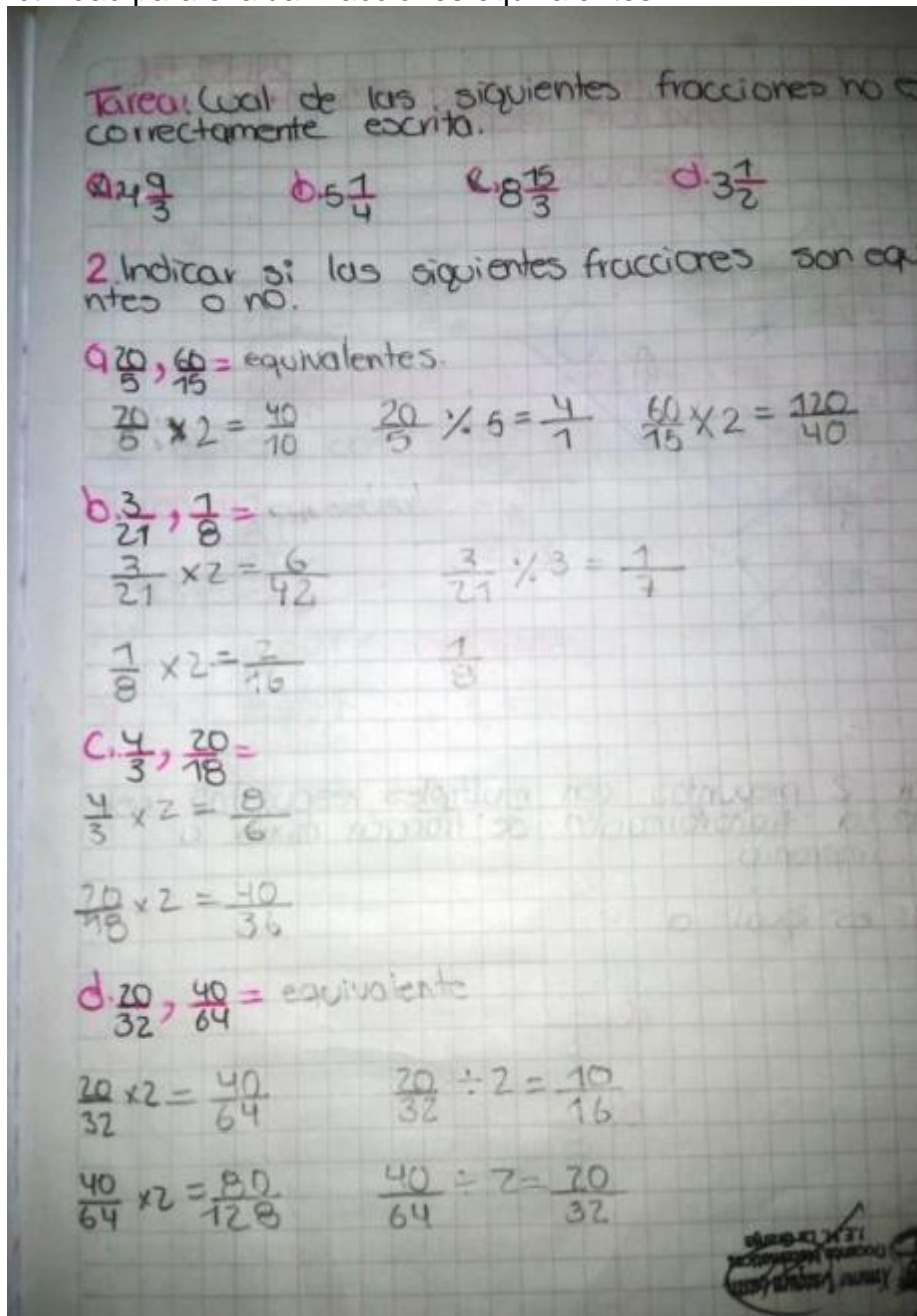 Tarea: Cual de las siguientes fracciones no e
correctamente escrita.
a. 4 9/3 b. 5 1/4 c. 8 15/3 d. 3 1/2
2. Indicar si las siguientes fracciones son equ
ntes o no.
a 20/5, 60/15 = equivalentes.
20/5 x 2 = 40/10 20/5 ٪ 5 = 4/1 60/15 x 2 = 120/40
b. 3/21, 1/8 =
3/21 x 2 = 6/42 3/21 ٪ 3 = 1/7
1/8 x 2 = 2/16 1/8
c. 4/3, 20/18 =
4/3 x 2 = 8/6
20/18 x 2 = 40/36
d. 20/32, 40/64 = equivalente
20/32 x 2 = 40/64 20/32 ÷ 2 = 10/16
40/64 x 2 = 80/128 40/64 ÷ 2 = 20/32